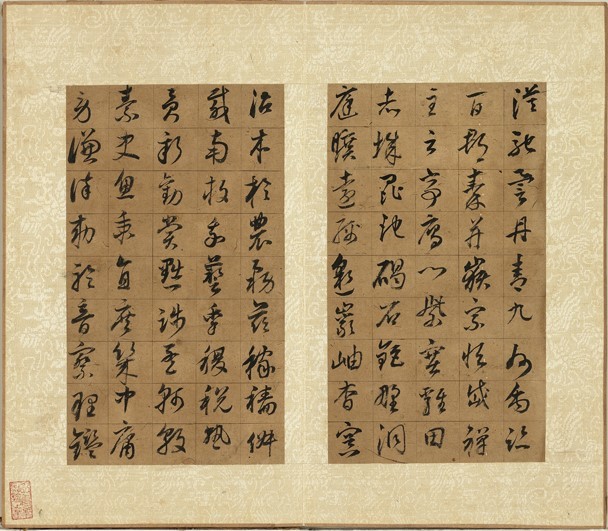 漠馳譽丹青九州禹跡
百郡秦并嶽宗恒岱禪
主云亭雁門紫塞雞田
赤城昆池碣石鉅野洞
庭曠遠綿邈巖岫杳冥
治本於農務茲稼穡俶
載南畝我藝黍稷稅熟
貢新勸賞黜陟孟軻敦
素史魚秉直庶幾中庸
勞謙謹勅聆音察理鑑